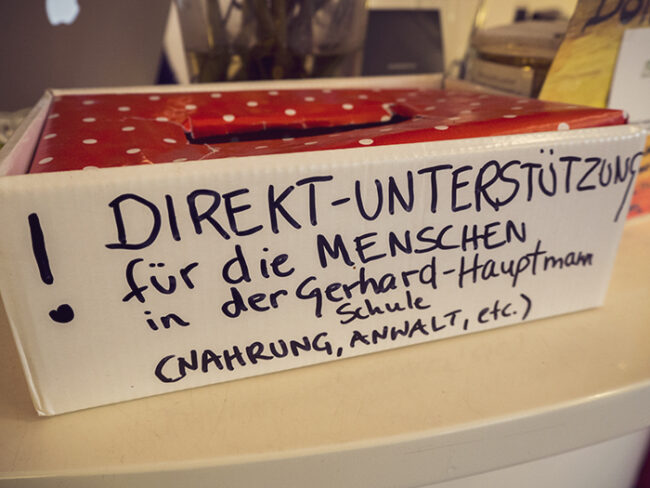 ! DIREKT-UNTERSTÜTZUNG
für die MENSCHEN
in der Gerhard-Hauptmann
Schule
(NAHRUNG, ANWALT, etc.)